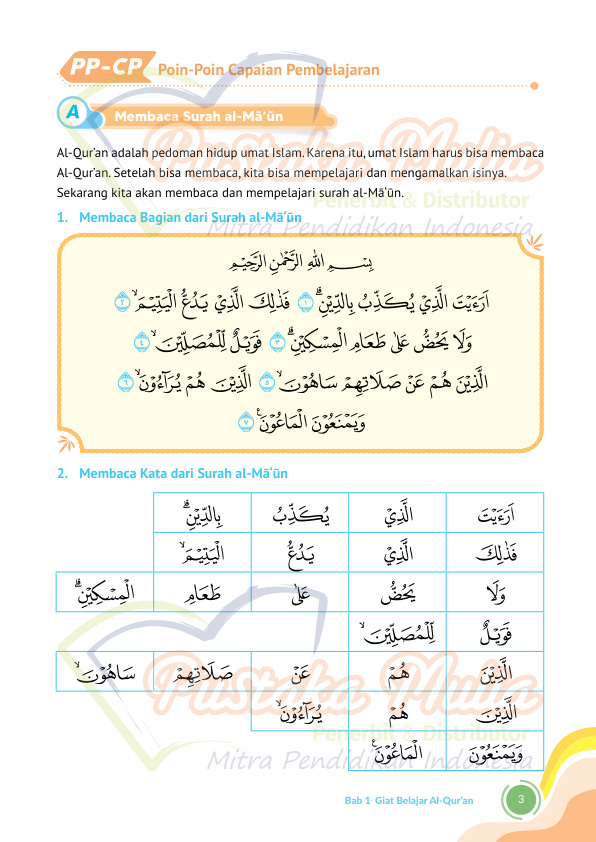 PP-CP Poin-Poin Capaian Pembelajaran
A Membaca Surah al-Mā‘ūn
Al-Qur’an adalah pedoman hidup umat Islam. Karena itu, umat Islam harus bisa membaca
Al-Qur’an. Setelah bisa membaca, kita bisa mempelajari dan mengamalkan isinya.
Sekarang kita akan membaca dan mempelajari surah al-Mā‘ūn.
1. Membaca Bagian dari Surah al-Mā‘ūn
بِسْمِ اللّٰهِ الرَّحْمٰنِ الرَّحِيْمِ
اَرَءَيْتَ الَّذِيْ يُكَذِّبُ بِالدِّيْنِۗ ١ فَذٰلِكَ الَّذِيْ يَدُعُّ الْيَتِيْمَۙ ٢
وَلَا يَحُضُّ عَلٰى طَعَامِ الْمِسْكِيْنِۗ ٣ فَوَيْلٌ لِّلْمُصَلِّيْنَۙ ٤
الَّذِيْنَ هُمْ عَنْ صَلَاتِهِمْ سَاهُوْنَۙ ٥ الَّذِيْنَ هُمْ يُرَاۤءُوْنَۙ ٦
وَيَمْنَعُوْنَ الْمَاعُوْنَ ࣖ ٧
2. Membaca Kata dari Surah al-Mā‘ūn
اَرَءَيْتَ الَّذِيْ يُكَذِّبُ بِالدِّيْنِۗ
فَذٰلِكَ الَّذِيْ يَدُعُّ الْيَتِيْمَۙ
وَلَا يَحُضُّ عَلٰى طَعَامِ الْمِسْكِيْنِۗ
فَوَيْلٌ لِّلْمُصَلِّيْنَۙ
الَّذِيْنَ هُمْ عَنْ صَلَاتِهِمْ سَاهُوْنَۙ
الَّذِيْنَ هُمْ يُرَاۤءُوْنَۙ
وَيَمْنَعُوْنَ الْمَاعُوْنَ ࣖ
Pustaka Mulia
Penerbit & Distributor
Mitra Pendidikan Indonesia
Pustaka Mulia
Penerbit & Distributor
Mitra Pendidikan Indonesia
Bab 1 Giat Belajar Al-Qur’an 3